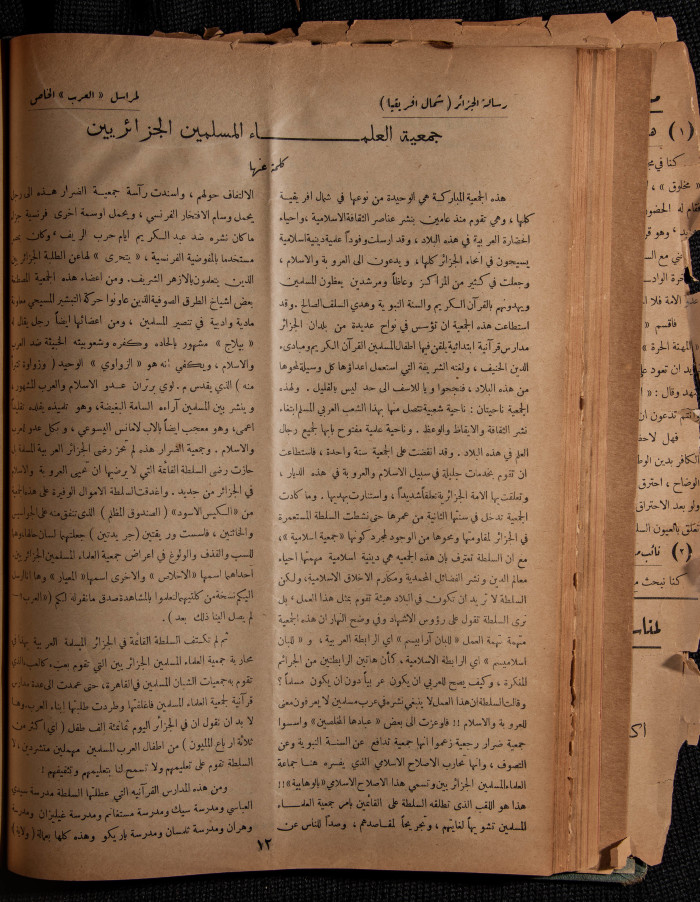 رسالة الجزائر ( شمال افريقيا )
لمراسل « العرب » الخاص
جمعية العلمـــاء المسلمين الجزائريين
كلمة عنها
هذه الجمعية المباركة هي الوحيدة من نوعها في شمال افريقية
كلها ، وهي تقوم منذ عامين بنشر عناصر الثقافة الاسلامية ، واحياء
الحضارة العربية في هذه البلاد ، وقد ارسلت وفوداً علمية دينية اسلامية
يسيحون في انحاء الجزائر كلها ، و يدعون الى العروبة والاسلام ،
وجعلت في كثير من المراكز وعاظاً ومرشدين يعظون المسلمين
ويهدونهم بالقرآن الكريم والسنة النبوية وهدي السلف الصالح . وقد
استطاعت هذه الجمعية ان تؤسس في نواح عديدة من بلدان الجزائر
مدارس قرآنية ابتدائية يلقن فيها اطفال المسلمين القرآن الكريم ومبادىء
الدين الحنيف ، ولغته الشريفة التي استعمل اعداؤها كل وسيلة لمحوها
من هذه البلاد ، فنجحوا ويا للاسف الى حد ليس بالقليل . ولهذه
الجمعية ناحيتان : ناحية شعبية تتصل منها بهذا الشعب العربي المسلم ابتغاء
نشر الثقافة والايقاظ والوعظ . وناحية علمية مفتوح بابها لجميع رجال
العلم في هذه البلاد . وقد انقضت على الجمعية سنة واحدة ، فاستطاعت
ان تقوم بخدمات جليلة في سبيل الاسلام والعروبة في هذه الديار ،
وتعلقت بها الامة الجزائرية تعلقاً شديداً ، واستنارت بهديها . وما كادت
الجمعية تدخل في سنتها الثانية من عمرها حتى نشطت السلطة المستعمرة
في الجزائر لمقاومتها وعوها من الوجود لمجرد كونها « جمعية اسلامية » ،
مع ان السلطة تعترف بان هذه الجمعيه هي دينية اسلامية مهمتها احياء
معالم الدين ونشر الفضائل المحمدية ومكارم الاخلاق الاسلامية ، ولكن
السلطة لا تريد ان تكون في البلاد هيئة تقوم بمثل هذا العمل ، بل
ترى السلطة تقول على رؤوس الاشهاد وفي وضح النهار ان هذه الجمعية
متهمة تهمة العمل « للبان آرابيسم » اي الرابطة العربية ، و « للبان
اسلاميسم » اي الرابطة الاسلامية . كأن هاتين الرابطتين من الجرائم
المنكرة ، وكيف يصح للعربي ان يكون عربياً دون ان يكون مسلماً ؟
وقالت السلطة ان هذا العمل لا ينبغي نشره في عرب مسلمين لا يعرفون معنى
للعروبة والاسلام !! فاوعزت الى بعض « عبادها المخلصين » واسسوا
جمعية ضرار رجعية زعموا انها جمعية تدافع عن السنة النبوية وعن
التصوف ، وانها تحارب الاصلاح الاسلامي الذي يفسره هنا جماعة
العلماء المسلمين الجزائريين وتسمي هذا الاصلاح الاسلامي « بالوهابية » !!
هذا هو اللقب الذي تطلقه السلطة على القائمين بامر جمعية العلماء
المسلمين تشويهاً لغايتهم ، وتجريحاً لمقاصدهم ، وصداً للناس عن
الالتفاف حولهم ، واسندت رآسة جمعية الضرار هذه الى رجل
يحمل وسام الافتخار الفرنسي ، ويحمل اوسمة اخرى فرنسية
ما كان نشره ضد عبد الكريم ايام حرب الريف ، وكان
مستخدما بالمفوضية الفرنسية ، « يتحرى » لها عن الطلبة الجزائريين
الذين يتعلمون بالازهر الشريف . ومن اعضاء هذه الجمعية
بعض اشياخ الطرق الصوفية الذين عاونوا حركة التبشير المسيحي معاونة
مادية وادبية في تنصير المسلمين ، ومن اعضائها ايضاً رجل يقال له
« بيلاج » مشهور بالحاده وكفره وشعوبيته الخبيثة ضد العرب
والاسلام ، ويكفي انه هو « الزواوي » الوحيد ( وزواوة تبرأ
منه ) الذي يقدس م . لوي برتران عدو الاسلام والعرب المشهور ،
و ينشر بين المسلمين آراءه السامة البغيضة ، وهو تلميذه يقلده تقليداً
اعمى ، وهو معجب ايضاً بالاب لامانس اليسوعي ، وبكل عدو للعرب
والاسلام . وجمعية الضرار هذه لم تحز رضى الجزائر العربية المسلمة بل
حازت رضى السلطة القائمة التي لا يرضيها ان تحيى العروبة والاسلام
في الجزائر من جديد . واغدقت السلطة الاموال الوفيرة على هذه الجمعية
من « الكيس الاسود » ( الصندوق المظلم ) الذى تنفق منه على الجواسيس
والخائنين ، فاسست وريقتين ( جريدتين ) جعلتهما لسان حالها
للسب والقذف والولوغ في اعراض جمعية العلماء المسلمين الجزائريين
احداهما اسمها « الاخلاص » والاخرى اسمها « المعيار » وها انا ارسل
اليكم نسخة من كلتيهما لتعلموا بالمشاهدة صدق ما نقوله لكم ( « العرب » :
لم يصل الينا ذلك بعد ) .
ثم لم تكتف السلطة القائمة في الجزائر المسلمة العربية بهذا في
محاربة جمعية العلماء المسلمين الجزائريين التي تقوم بعبء كالعبء الذي
تقوم به جمعيات الشبان المسلمين في القاهرة ، حتى عمدت الى عدة مدارس
قرآنية لجمعية العلماء المسلمين فاغلقتها وطردت طلبتها ابناء العرب وهنا
لا بد ان نقول ان في الجزائر اليوم ثمانمئة الف طفل ( اي اكثر من
ثلاثة ارباع المليون ) من اطفال العرب المسلمين مهملين متشردين ، لا
السلطة تقوم على تعليمهم ولا تسمح لنا بتعليمهم وتثقيفهم !
ومن هذه المدارس القرآنيه التي عطلتها السلطة مدرسة سيدي
العباسي ومدرسة سيك ومدرسة مستغانم ومدرسة غيليزان ومدرسة
وهران ومدرسة تلمسان ومدرسة باريكو وهذه كلها بعمالة ( ولاية )
١٢
( ١ )
كنا في
« مخلوق » ،
( ٢ ) نائب
كنا نبحث